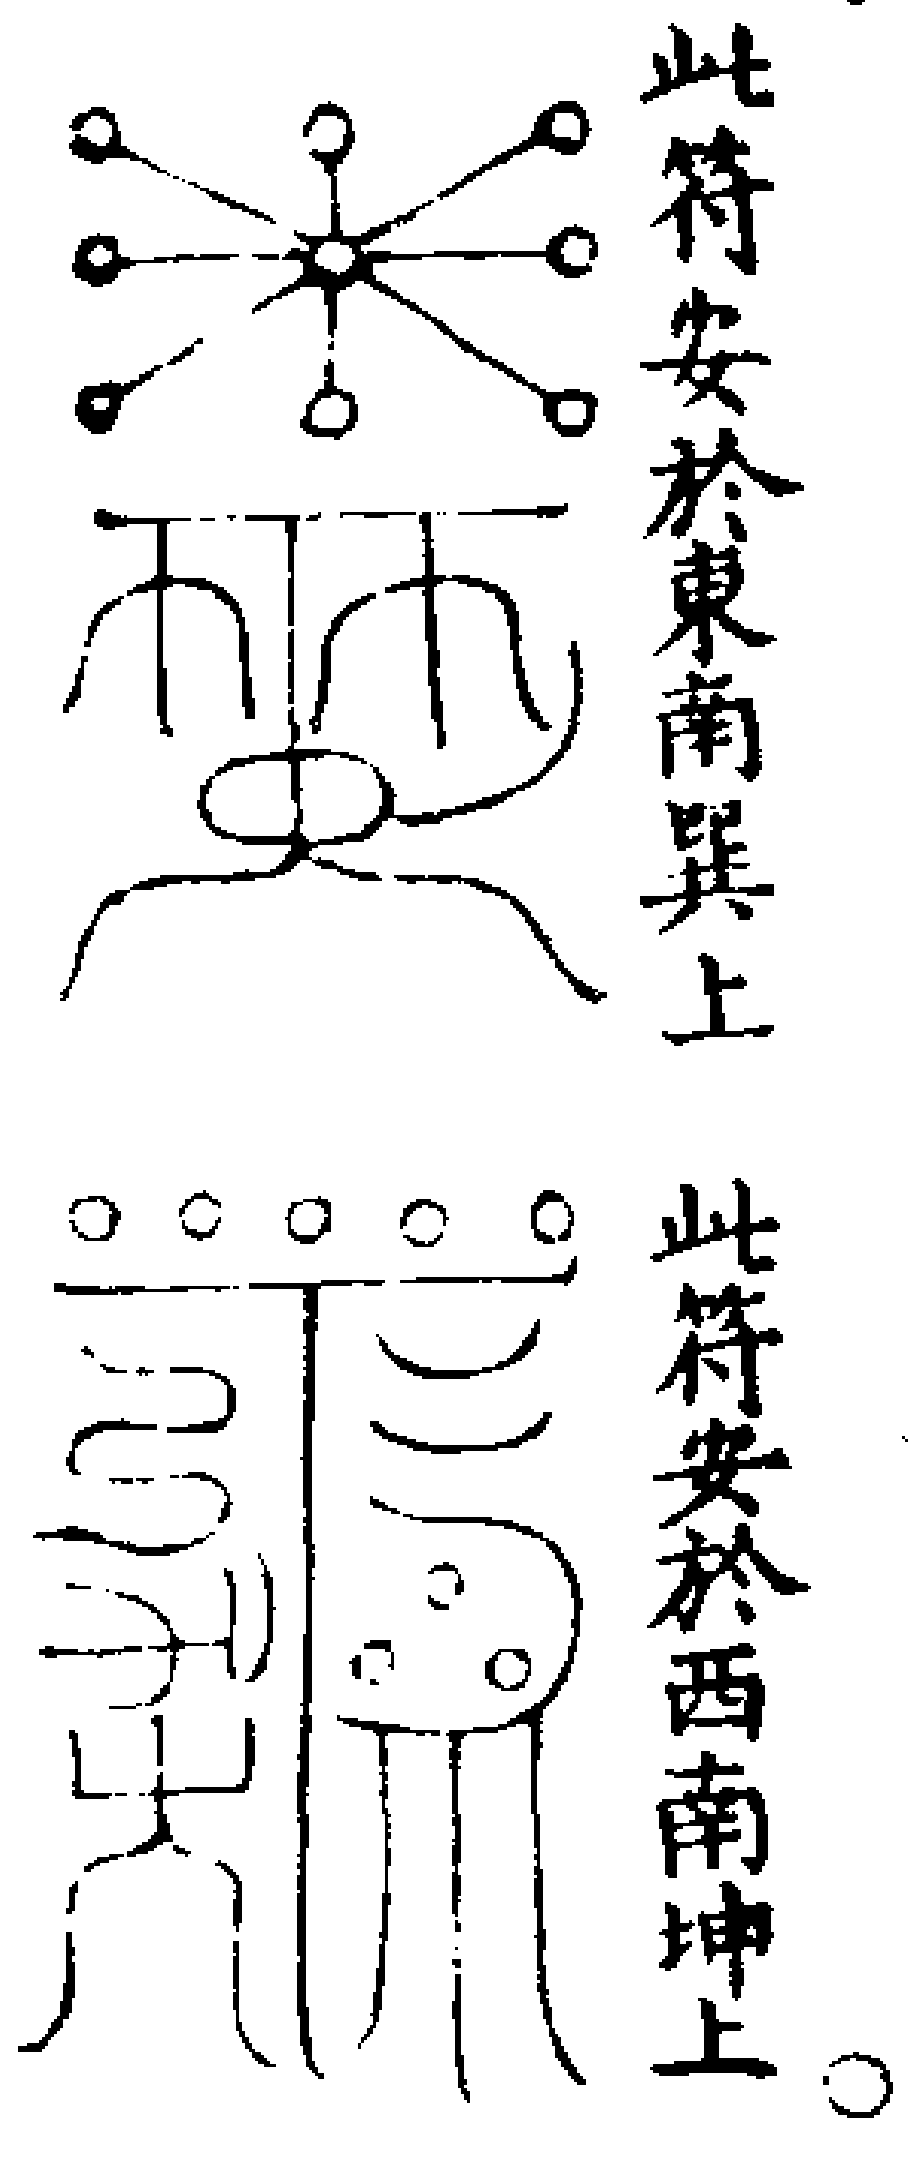 此符安於東南巽上
此符安於西南坤上